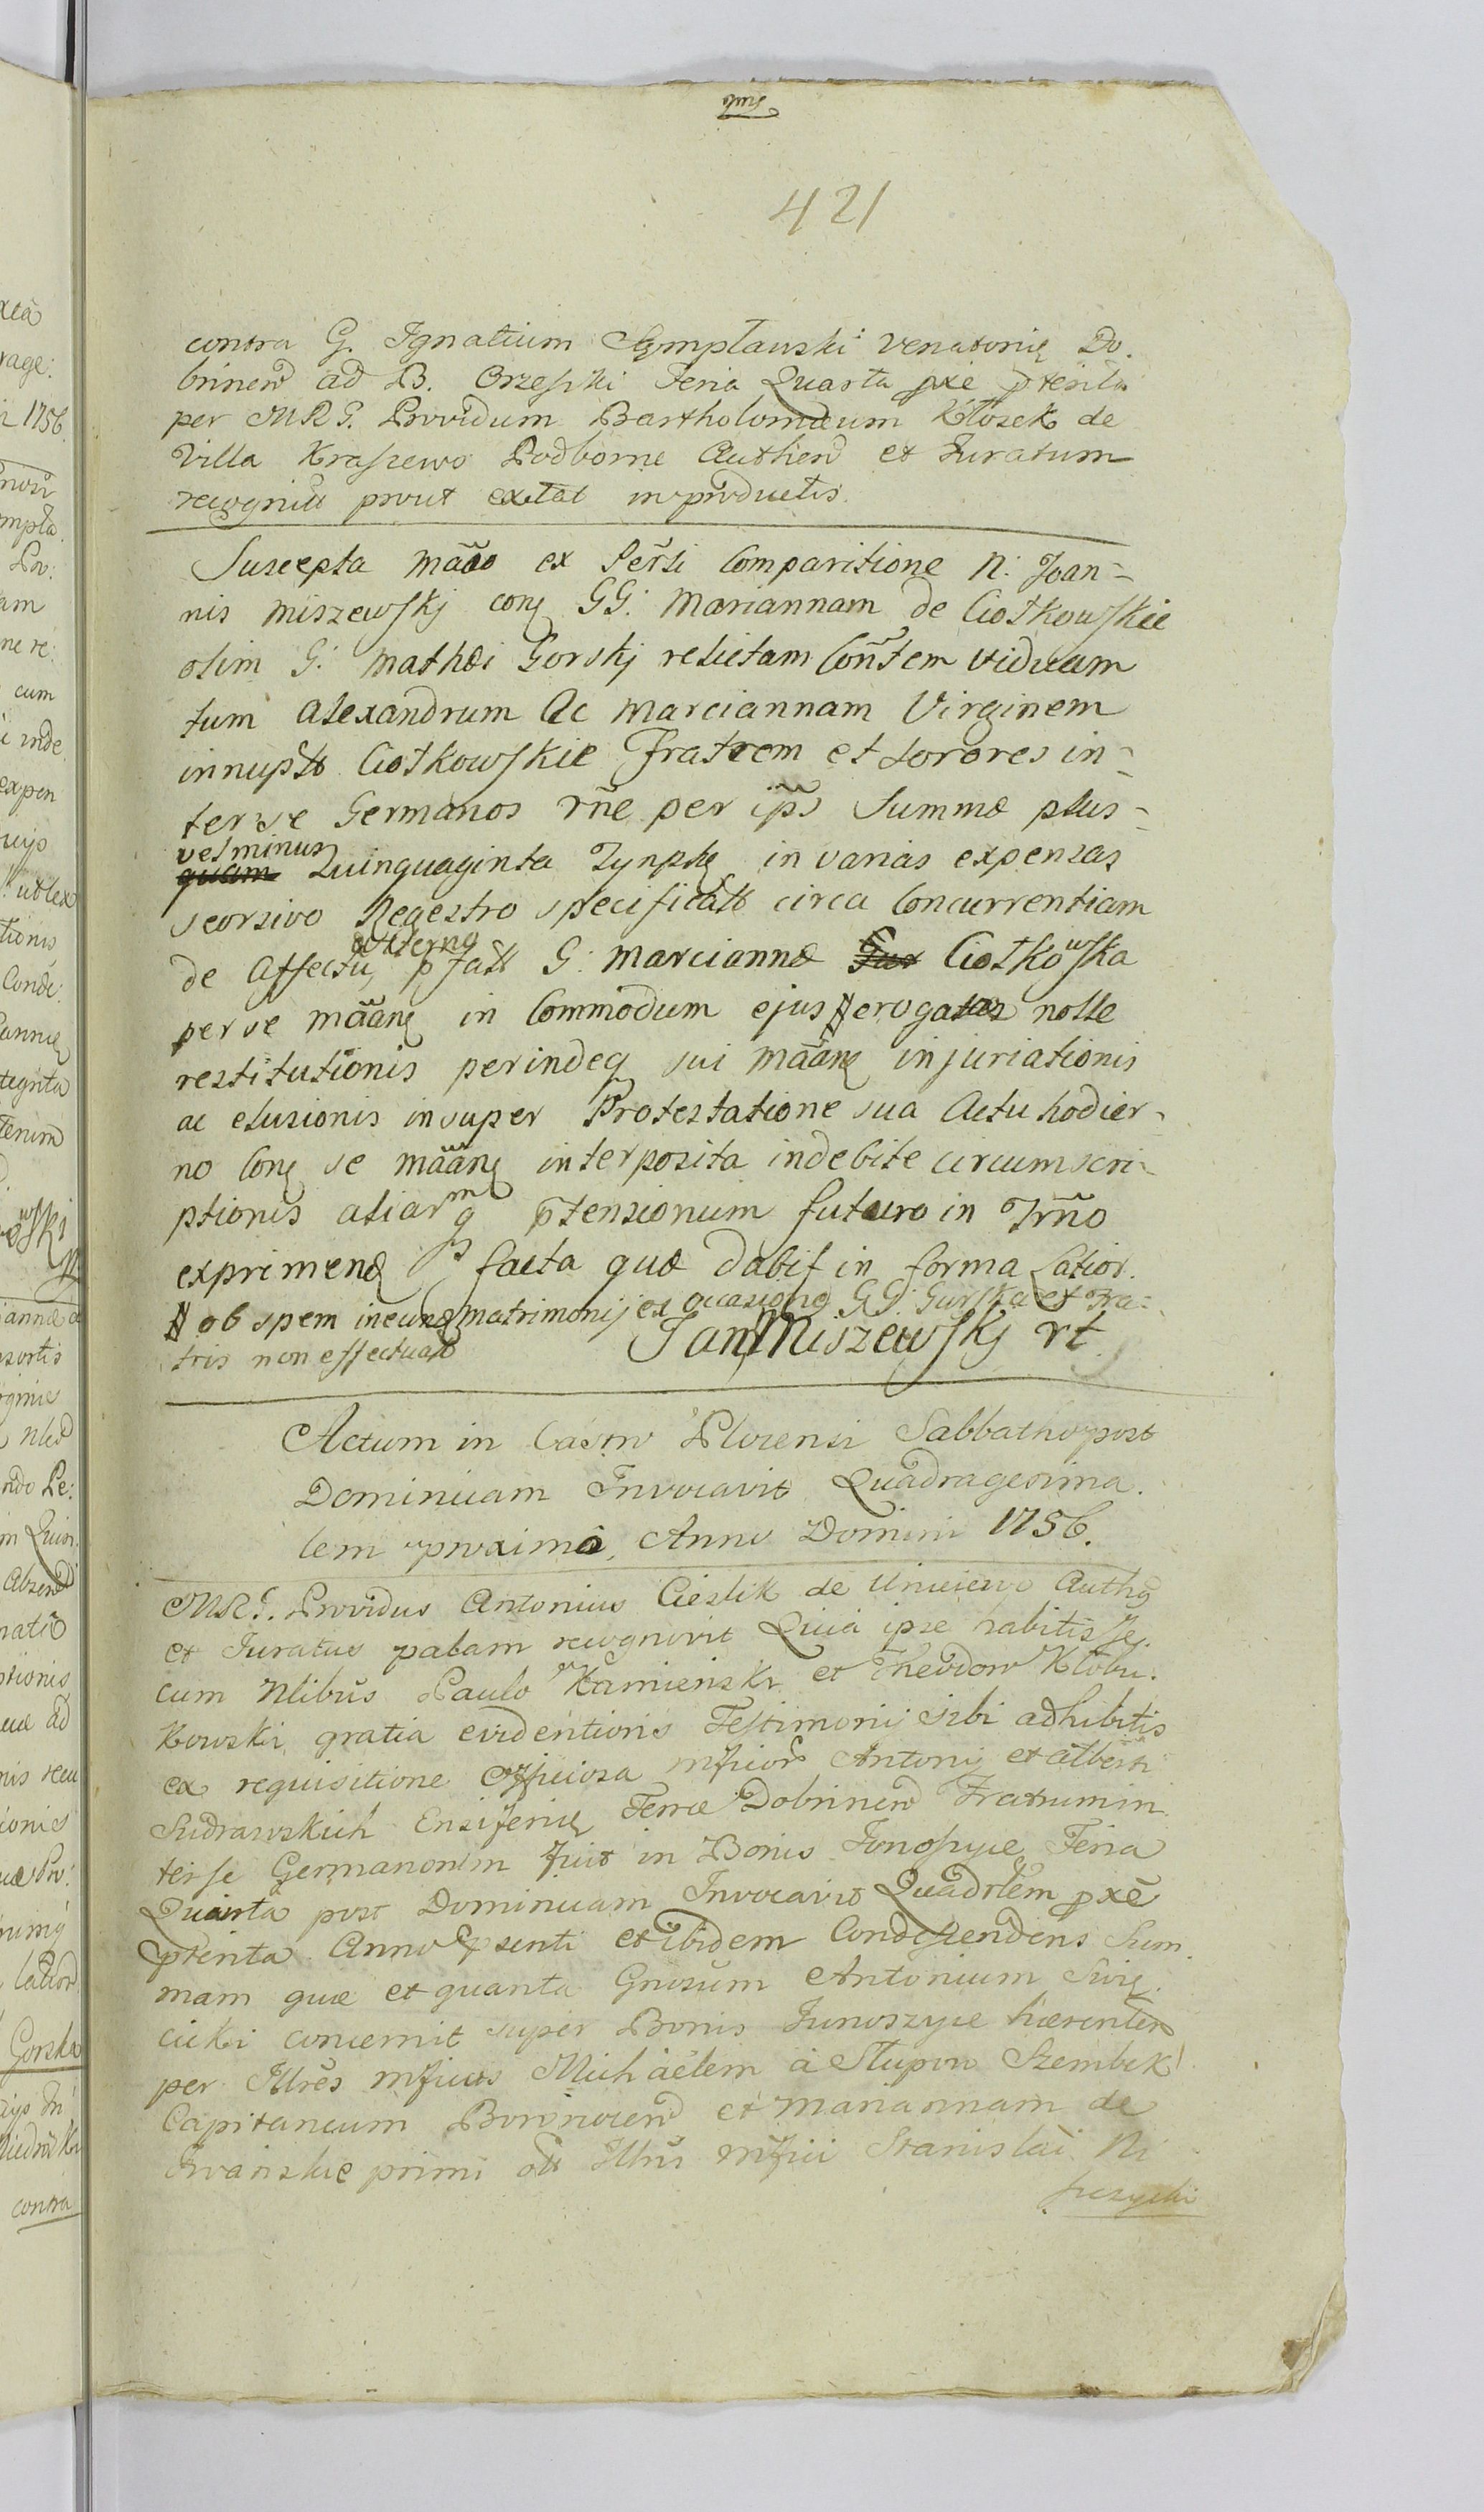 421
contra G. Ignatium Symplawski Venatorię Do.
brinen ad B. Orzeszki Feria Quarta pxē pterita
per MRG. Providum Bartholomæum Kłosek de
Villa Kraszewo Podborne Authen et Juratum
recognitt prout extat in productis.
Suscepta mãão ex Persĩi Comparitione N: Joan=
nis Miszewskj coną GG: Mariannam de Ciołkowskie
olim G: Mathæi Gorskj relictam Coñtem viduam
tum Alexandrum Ac Marciannam Virginem
innuptã Ciołkowskie Fratrem et Sorores in=
ter se Germanos rñe per ip̃s Summæ plus=
vel minus
quam Quinquaginta Tynphę in varias expensas
seorsivo Regestro specificatt circa Concurrentiam
alterno
de Affectu, p fatt G: Marciannæ Gur Ciołkowska
per se mãanę in Commodum ejus # erogatas nolle
restitutionis perindeq sui mãanę injuriationis
ac elusionis insuper Protestatione sua Actu hodier=
no Conę se mãanę interposita indebite circumscri=
ptionis aliarmq ptensionum futuro in Trm̃o
exprimend facta quæ dabit in forma latior.
# ob spem ineund matrimonij ex occasione GG: Gurska et Fra=
tris non effectuatt Jan Miszewskj rt
Actum in Castro Plocensi Sabbatho post
Dominicam Invocavit Quadragesima.
lem proxima, Anno Domini 1756.
MRG. Providus Antonius Cieslik de Unieiewo Authę
et Juratus palam recognovit Quia ipse habitis se.
cum Nlibus Paulo Kamienski et Theodoro Kłobu.
kowski gratia evidentioris Testimonij sibi adhibitis
ex requisitione officiosa Mficor Antonij et Alberti
Sudrawskich Ensiferię Terræ Dobrinen Fratrum in.
ter se Germanorum fuit in Bonis Junoszyce Feria
Quinta post Dominicam Invocavit Quadrlem pxē
pterita Anno psenti et ibidem Condescendens Sum.
mam quæ et quanta Gnosum Antonium Swię.
cicki concernit super Bonis Junoszyce hærenten
per Illres Mficos Michaelem à Słupow Szembek
Capitaneum Borowicen et Mariannam de
Iwanskie primi ott Illris Mfici Stanislai Ni
szczycki